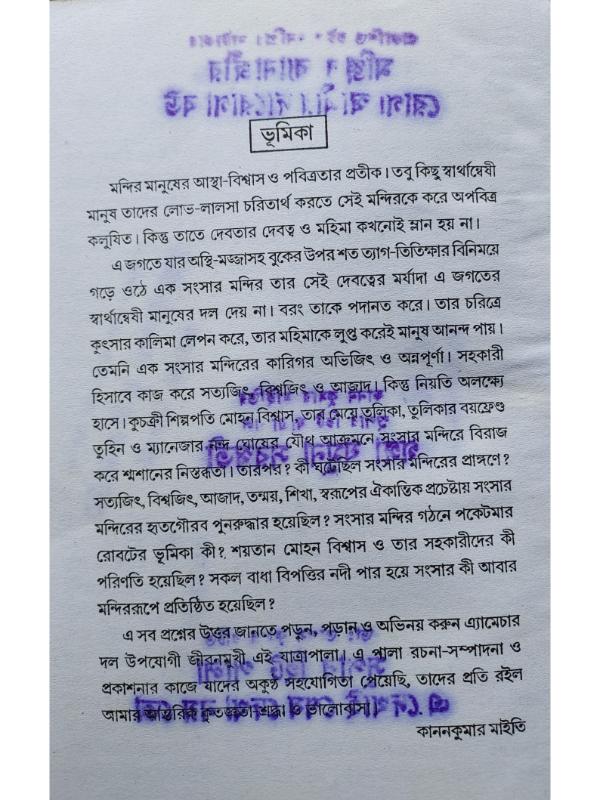 ভূমিকা
মন্দির মানুষের আস্থা-বিশ্বাস ও পবিত্রতার প্রতীক। তবু কিছু স্বার্থান্বেষী
মানুষ তাদের লোভ-লালসা চরিতার্থ করতে সেই মন্দিরকে করে অপবিত্র
কলুষিত। কিন্তু তাতে দেবতার দেবত্ব ও মহিমা কখনোই ম্লান হয় না।
এ জগতে যার অস্থি-মজ্জাসহ বুকের উপর শত ত্যাগ-তিতিক্ষার বিনিময়ে
গড়ে ওঠে এক সংসার মন্দির তার সেই দেবত্বের মর্যাদা এ জগতের
স্বার্থান্বেষী মানুষের দল দেয় না। বরং তাকে পদানত করে। তার চরিত্রে
কুৎসার কালিমা লেপন করে, তার মহিমাকে লুপ্ত করেই মানুষ আনন্দ পায়।
তেমনি এক সংসার মন্দিরের কারিগর অভিজিৎ ও অন্নপূর্ণা। সহকারী
হিসাবে কাজ করে সত্যজিৎ, বিশ্বজিৎ ও আজাদ। কিন্তু নিয়তি অলক্ষ্যে
হাসে। কুচক্রী শিল্পপতি মোহন বিশ্বাস, তার মেয়ে তুলিকা, তুলিকার বয়ফ্রেণ্ড
তুহিন ও ম্যানেজার নন্দ ঘোষের যৌথ আক্রমনে সংসার মন্দিরে বিরাজ
করে শ্মশানের নিস্তব্ধতা। তারপর? কী ঘটেছিল সংসার মন্দিরের প্রাঙ্গণে?
সত্যজিৎ, বিশ্বজিৎ, আজাদ, তন্ময়, শিখা, স্বরূপের ঐকান্তিক প্রচেষ্টায় সংসার
মন্দিরের হৃতগৌরব পুনরুদ্ধার হয়েছিল? সংসার মন্দির গঠনে পকেটমার
রোবটের ভূমিকা কী? শয়তান মোহন বিশ্বাস ও তার সহকারীদের কী
পরিণতি হয়েছিল? সকল বাধা বিপত্তির নদী পার হয়ে সংসার কী আবার
মন্দিররূপে প্রতিষ্ঠিত হয়েছিল?
এ সব প্রশ্নের উত্তর জানতে পড়ুন, পড়ান ও অভিনয় করুন এ্যামেচার
দল উপযোগী জীবনমুখী এই যাত্রাপালা। এ পালা রচনা-সম্পাদনা ও
প্রকাশনার কাজে যাদের অকুণ্ঠ সহযোগিতা পেয়েছি, তাদের প্রতি রইল
আমার আন্তরিক কৃতজ্ঞতা-শ্রদ্ধা ও ভালোবাসা।
কাননকুমার মাইতি